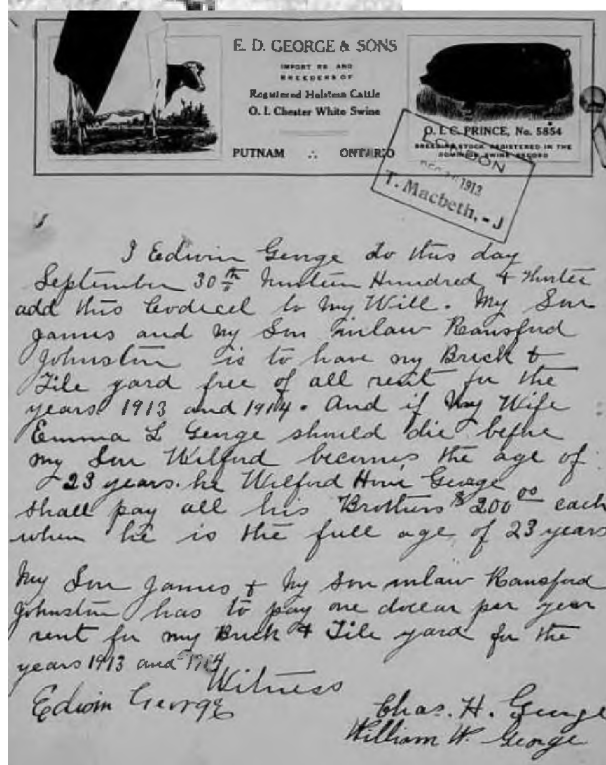 E. D. GEORGE & SONS
IMPORTERS AND
BREEDERS OF
Registered Holstein Cattle
O. I. Chester White Swine
PUTNAM ∴ ONTARIO
O. I. C. PRINCE, No. 5854
BREEDING STOCK REGISTERED IN THE
DOMINION SWINE RECORD
LONDON
1913
T. Macbeth, - J
I Edwin George do this day
September 30th Nineteen Hundred & thirteen
add this Codicel to my Will. My Son
James and my Son inlaw Ransford
Johnston is to have my Brick &
Tile yard free of all rent for the
years 1913 and 1914. And if my Wife
Emma L George should die before
my Son Wilford becomes the age of
23 years. he Wilford George
shall pay all his Brothers $200 00 each
when he is the full age of 23 years
My Son James & my Son inlaw Ransford
Johnston has to pay one dollar per year
rent for my Brick & Tile yard for the
years 1913 and 1914
Witness
Edwin George
Chas. H. George
William W. George